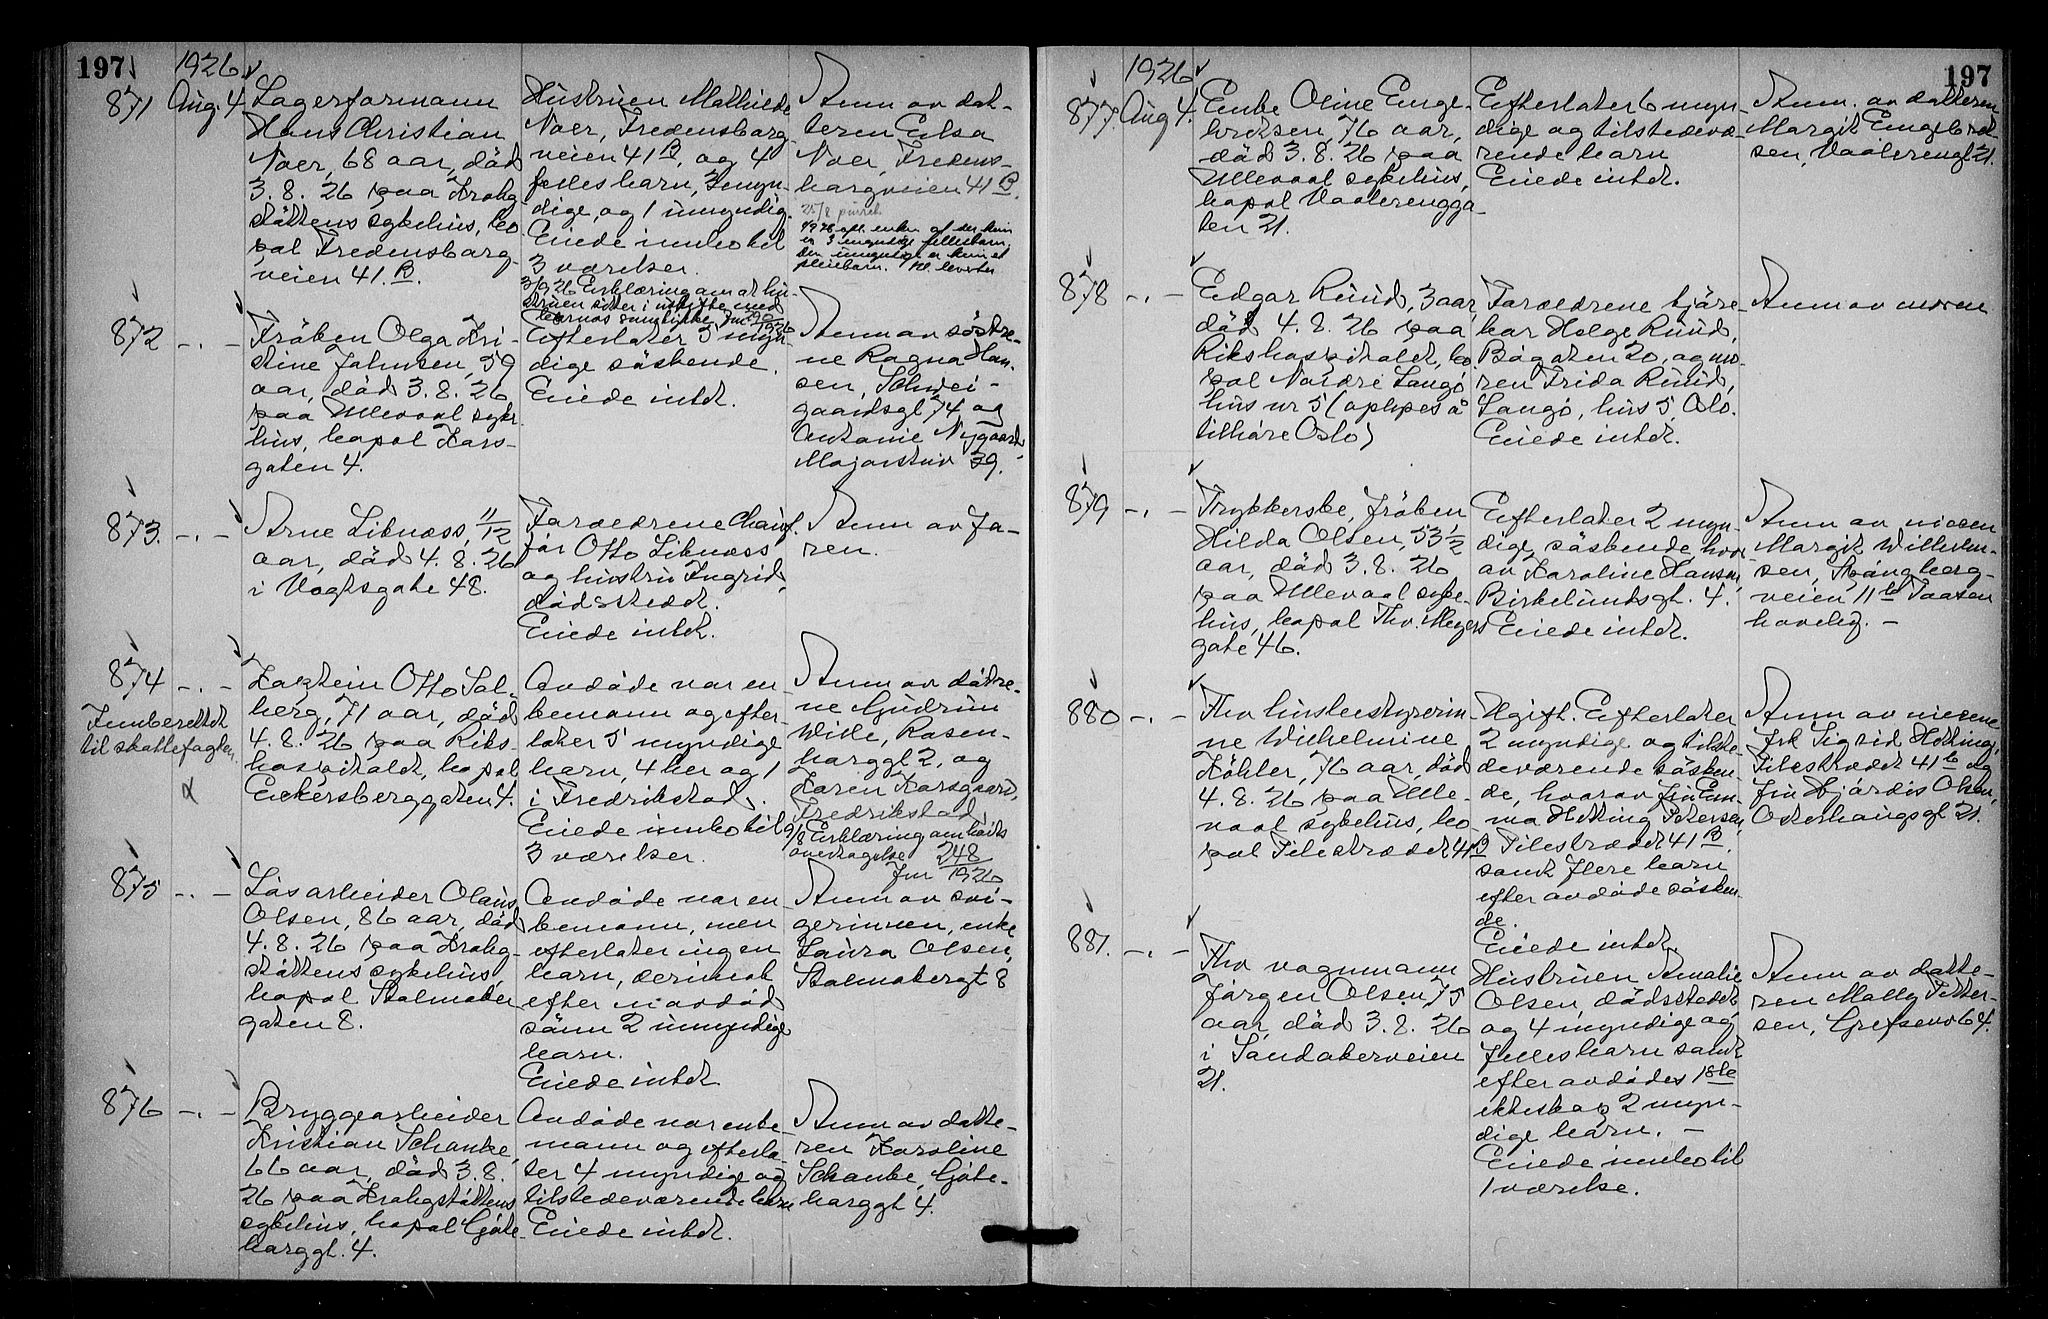 197
1926
871 Aug. 4
Lagerformann
Hans Christian
Noer, 68 aar, død
3.8.26 paa Krohg-
støttens sykehus, bo-
pæl Fredensborg-
veien 41.B.
Hustruen Mathilde
Noer, Fredensborg-
veien 41B, og 4
felles barn, 3 myn-
dige, og 1 umyndig.
Eiede innbo til
3 værelser.
3/9 26 Erklæring om at hu-
struen sitter i uskifte med
barnas samtykke
Anm av dat-
teren Elsa
Noer, Fredens-
borgveien 41B.
25/8 purret.
enken at der kun
er 3 myndige fellesbarn,
den umyndige er kun et
pleiebarn.
872 -.-
Frøken Olga Kri-
stine Johnsen, 59
aar, død 3.8.26
paa Ullevaal syke-
hus, bopæl Kors-
gaten 4.
Efterlater 5 myn-
dige søskende.
Eiede intet.
Anm av søstre-
ne Ragna Han-
sen, Schwei-
gaardsgt 74 og
Antonie Nygaard,
Majorstuv 39.
873. -.-
Arne Liknæss, 11/12
aar, død 4.8.26
i Vogtsgate 48.
Forældrene Chauf-
før Otto Liknæss
og hustru Ingrid,
dødsstedet.
Eiede intet.
Anm av fa-
ren.
874 -.-
Innberettet
til skattefogden
Kaptein Otto Sol-
berg, 71 aar, død
4.8.26 paa Riks-
hospitalet, bopæl
Eckersberggaten 4.
Avdøde var en-
kemann og efter-
later 5 myndige
barn, 4 her og 1
i Fredrikstad.
Eiede innbo til
3 værelser.
Anm av døtre-
ne Gudrun
Wille, Rosen-
borggt 2, og
Karen Korsgaard,
Fredrikstad
9/8 Erklæring om boets
overtagelse 248
Jnr 1926
875 -.-
Løsarbeider Olaus
Olsen, 86 aar, død
4.8.26 paa Krohg-
støttens sykehus,
bopæl Stolmaker
gaten 8.
Avdøde var en-
kemann, men
efterlater ingen
barn, derimot
efter en avdød
sønn 2 umyndige
barn.
Eiede intet
Anm av svi-
gerinnen, enke
Laura Olsen,
Stolmakergt 8
876 -.-
Bryggearbeider
Kristian Schanke,
66 aar, død 3.8.
26 paa Krohgstøttens
sykehus, bopæl Gøte-
borggt. 4.
Avdøde var enke-
mann og efterla-
ter 4 myndige og
tilstedeværende barn
Eiede intet.
Anm av datte-
ren Karoline
Schanke, Gøte-
borggt 4.
197
1926
877. Aug 4.
Enke Oline Enge-
bretsen, 76 aar,
død 3.8.26 paa
Ullevaal sykehus,
bopæl Vaalerengga-
ten 21.
Efterlater 6 myn-
dige og tilstedevæ-
rende barn
Eiede intet.
Anm. av datteren
Margit Engebret-
sen, Vaalerenggt 21.
878 -.-
Edgar Ruud, 3 aar
død 4.8.26 paa
Rikshospitalet, bo-
pæl Nordre Langø
hus nr 5 (oplyses å
tilhøre Oslo)
Forældrene kjøre-
kar Helge Ruud,
Bøgaten 20, og mo-
ren Frida Ruud,
Langø, hus 5 Oslo.
Eiede intet.
Anm av moren
879 -.-
Trykkerske, frøken
Hilda Olsen, 53 1/2
aar, død 3.8.26
paa Ullevaal syke-
hus, bopæl Thv. Meyers
gate 46.
Efterlater 2 myn-
dige søskende, hvor-
av Karoline Hansen,
Birkelundsgt. 4.
Eiede intet.
Anm av niesen
Margit Wilhelm-
sen, Spångberg-
veien 11 Taasen
haveby. -
880 -.-
Fhv husbestyrerin-
ne Wilhelmine
Köhler, 76 aar, død
4.8.26 paa Ulle-
vaal sykehus, bo-
pæl Pilestrædet 41 B
Ugift. Efterlater
2 myndige og tilste-
deværende søsken-
de, hvorav fru Em-
ma Hetting Petersen,
Pilestrædet 41B.
samt flere barn
efter avdøde søsken-
de.
Eiede intet.
Anm av niesene
frk Sigrid Hetting,
Pilestrædet 41b og
fru Hjørdis Olsen,
Osterhausgt 21.
881. -.-
Fhv vognmann
Jørgen Olsen, 75
aar, død 3.8.26
i Sandakerveien
21.
Hustruen Amalie
Olsen, dødsstedet
og 4 myndige og
felles barn samt
efter avdødes 1ste
ekteskap 2 myn-
dige barn. -
Eiede innbo til
1 værelse.
Anm av datte-
ren Mally Petter-
sen, Grefsenv 64.